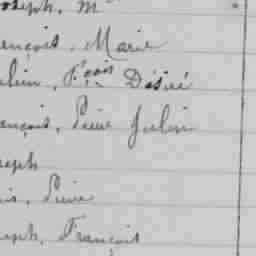 oseph, M
ençois, Marie
ulien, Fçois Désiré
ançois, Pierre Julien
seph
is, Pierre
seph, François